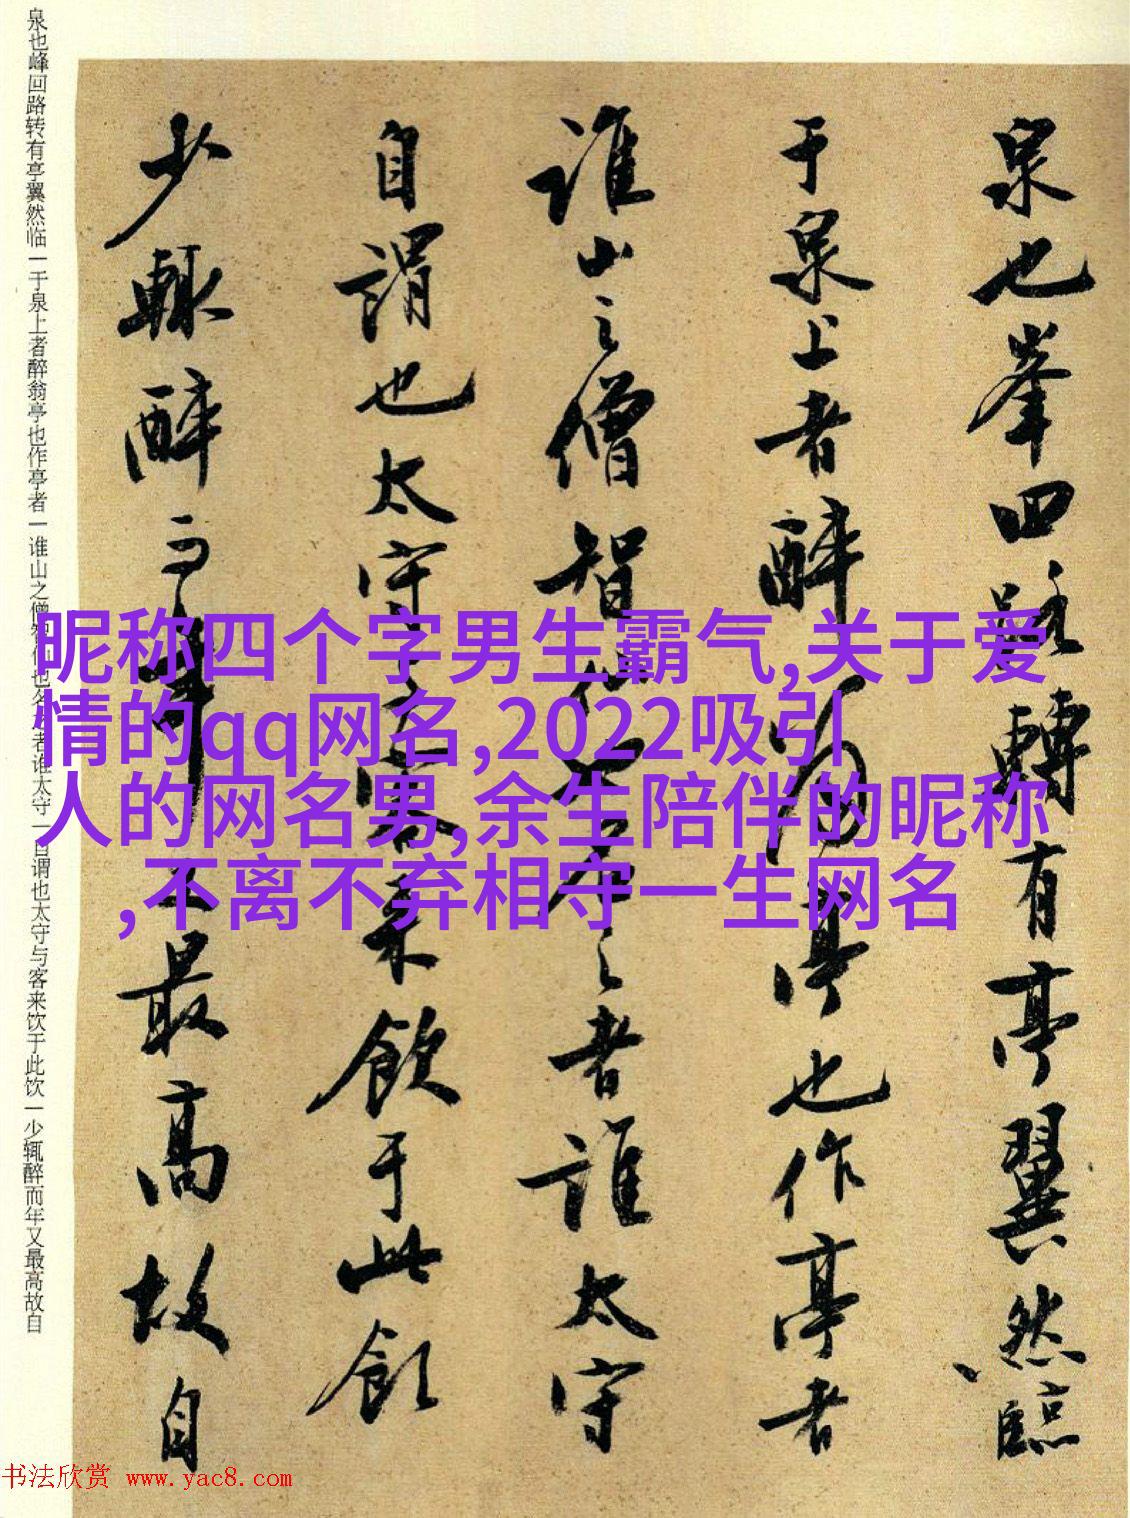 泉也峯回路轉有亭翼然臨
于泉上者醉翁亭也作亭者
誰山之僧智仙也名之者誰太守
自謂也太守与客来飲于此飲
少輒醉而年又最高故自
泉也峰回路转有亭翼然临一于泉上者醉翁亭也作亭者一谁山之僧智仙也名之者谁太守一自谓也太守与客来饮于此饮一少辄醉而年又最高故自
昵称四个字男生霸气,关于爱
情的qq网名,2022吸引
人的网名男,余生陪伴的昵称
,不离不弃相守一生网名
书法欣赏 www.yac8.com